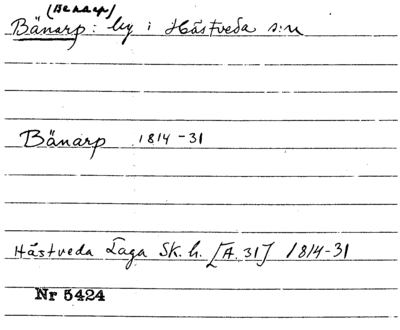 (Benarp)
Bänarp: by i Hästveda s:n
Bänarp 1814-31
Hästveda Laga Sk. h. [A. 31] 1814-31
Nr 5424